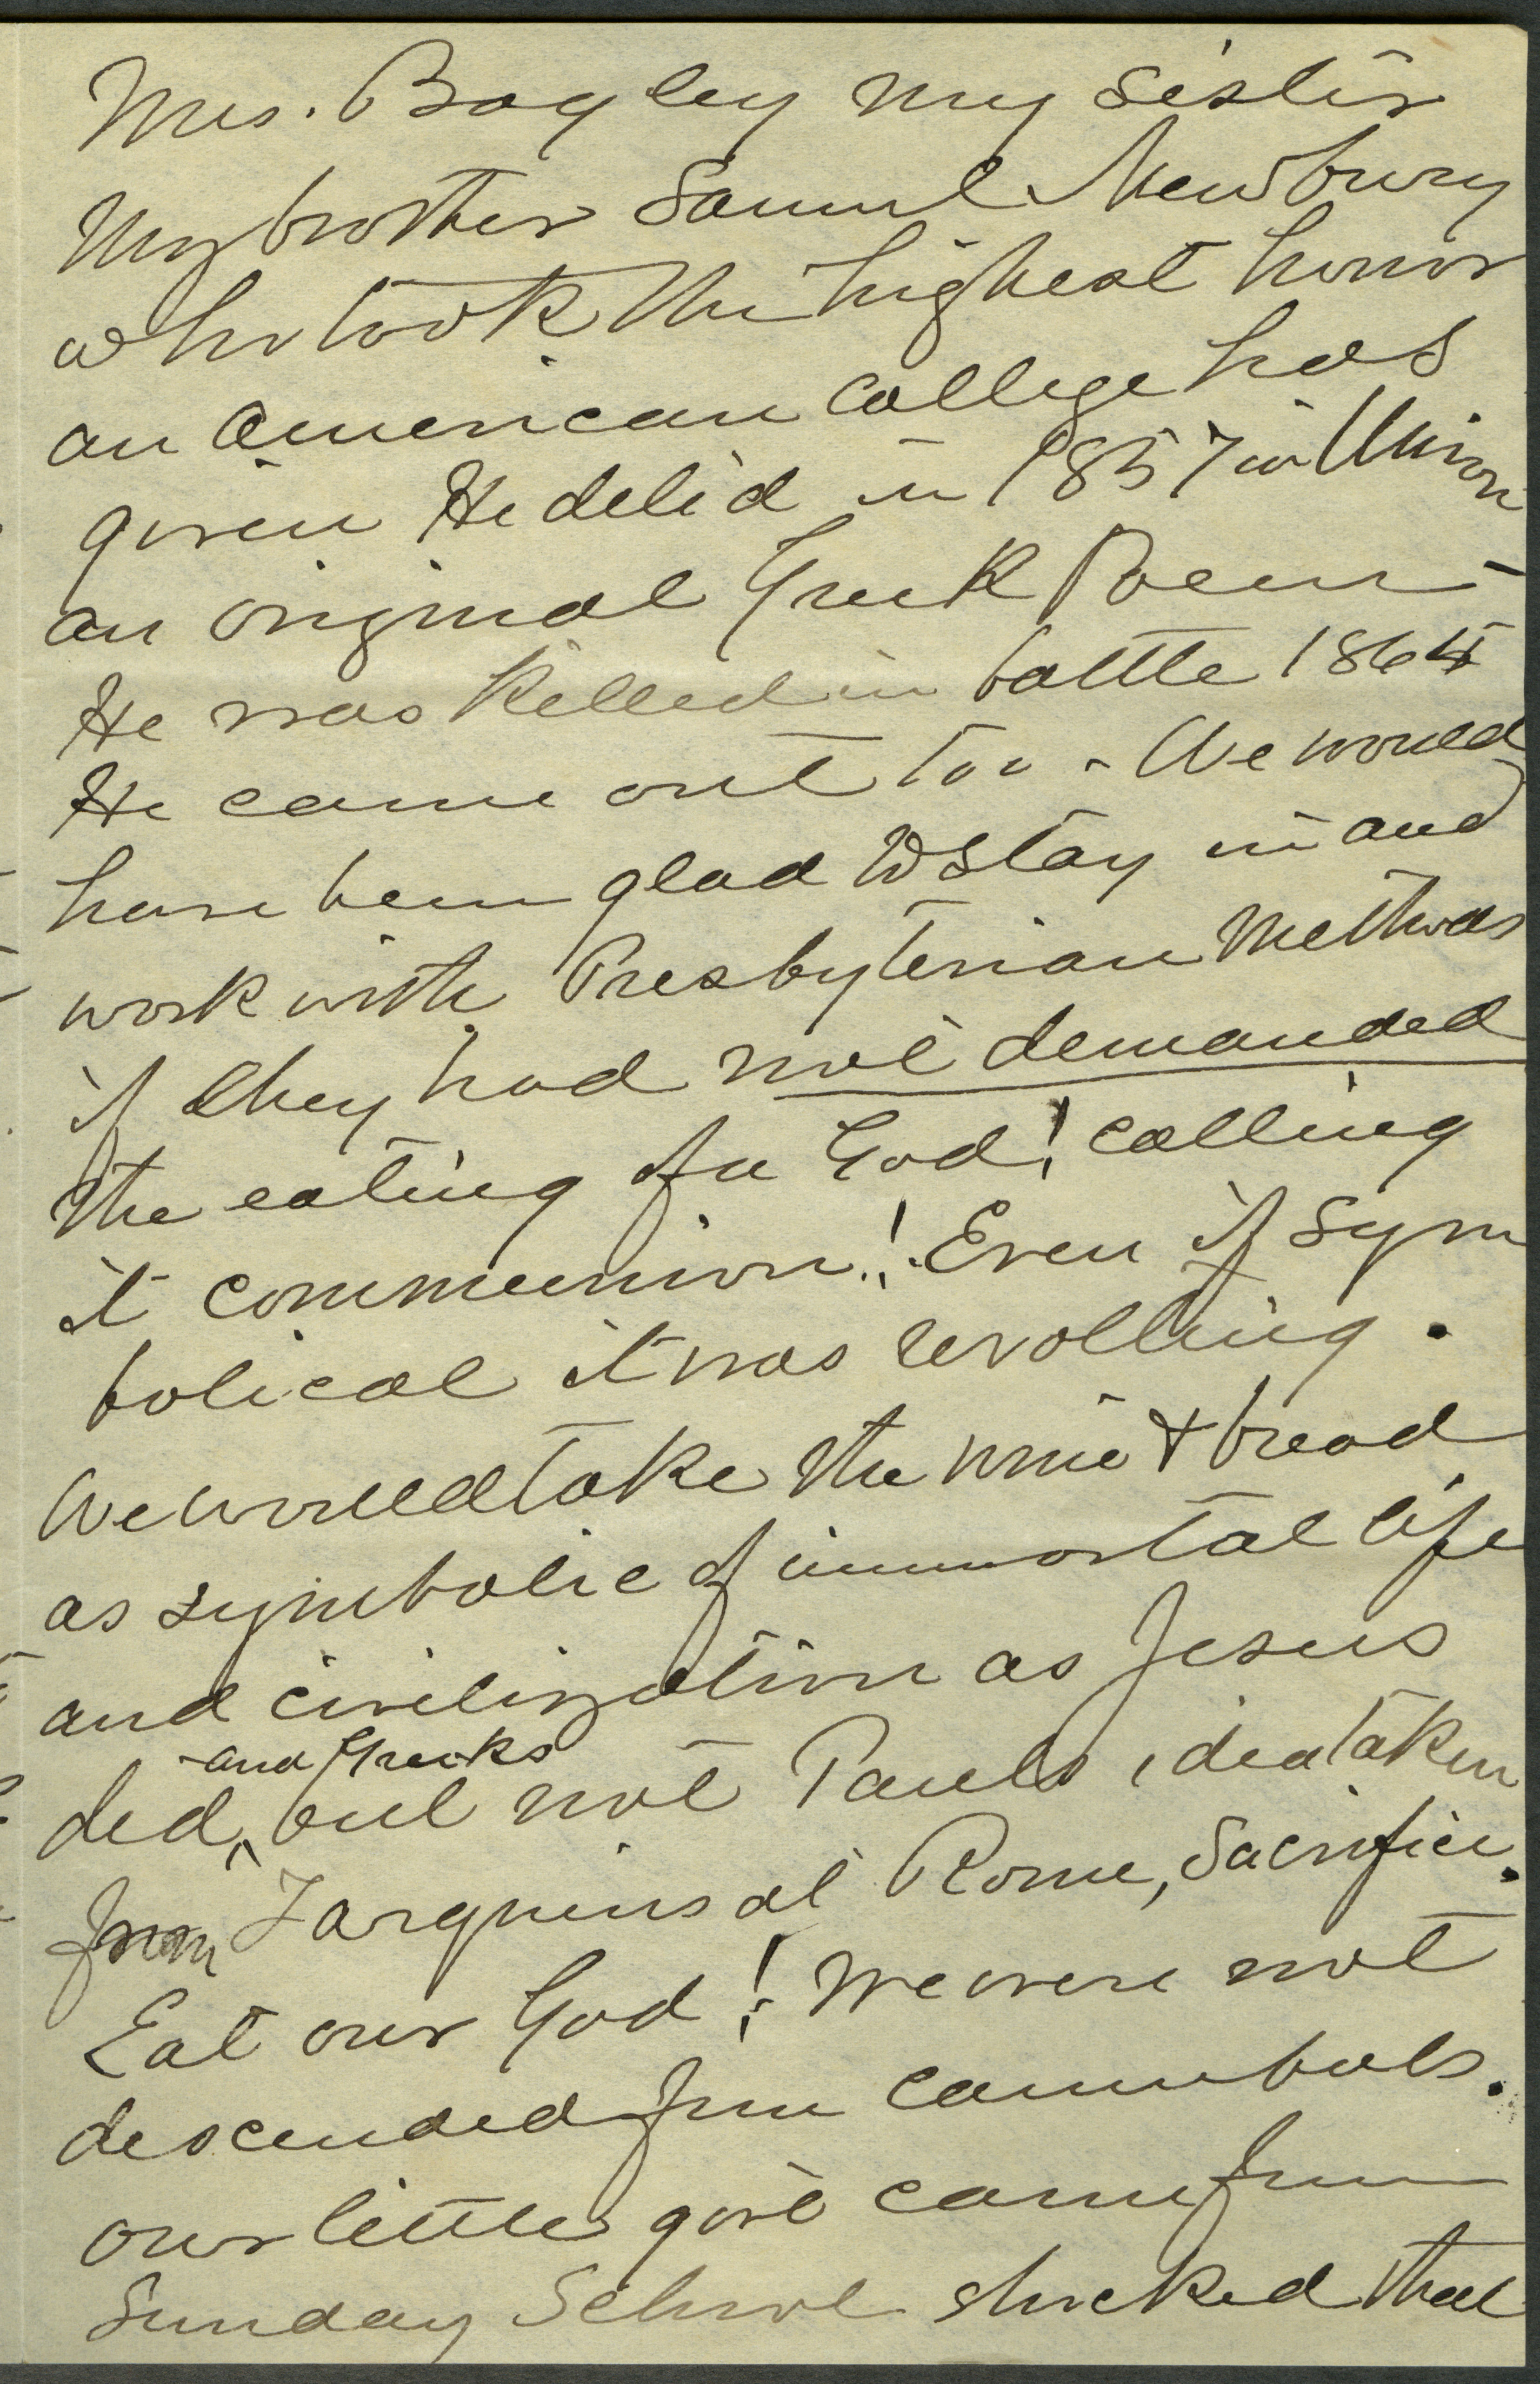 Mrs. Bagley my sister
My brother Samuel Newbury
who took the highest honor
an American college has
given He delid in 1857 in Union
an original Greek Poem -
He was killed in battle 1864
He came out too - We would
have been glad to stay in and
work with Presbyterian Methods
if they had not demanded
the eating of a God! calling
it communion! Even if sym
bolical it was revolting.
We would take the wine & bread
as symbolic of immortal life
and civilization as Jesus
and Greeks
did, but not Pauls idea taken
from Tarquins at Rome, Sacrifice.
Eat our God! We were not
descended from cannibals.
our little girl came from
Sunday School shocked that